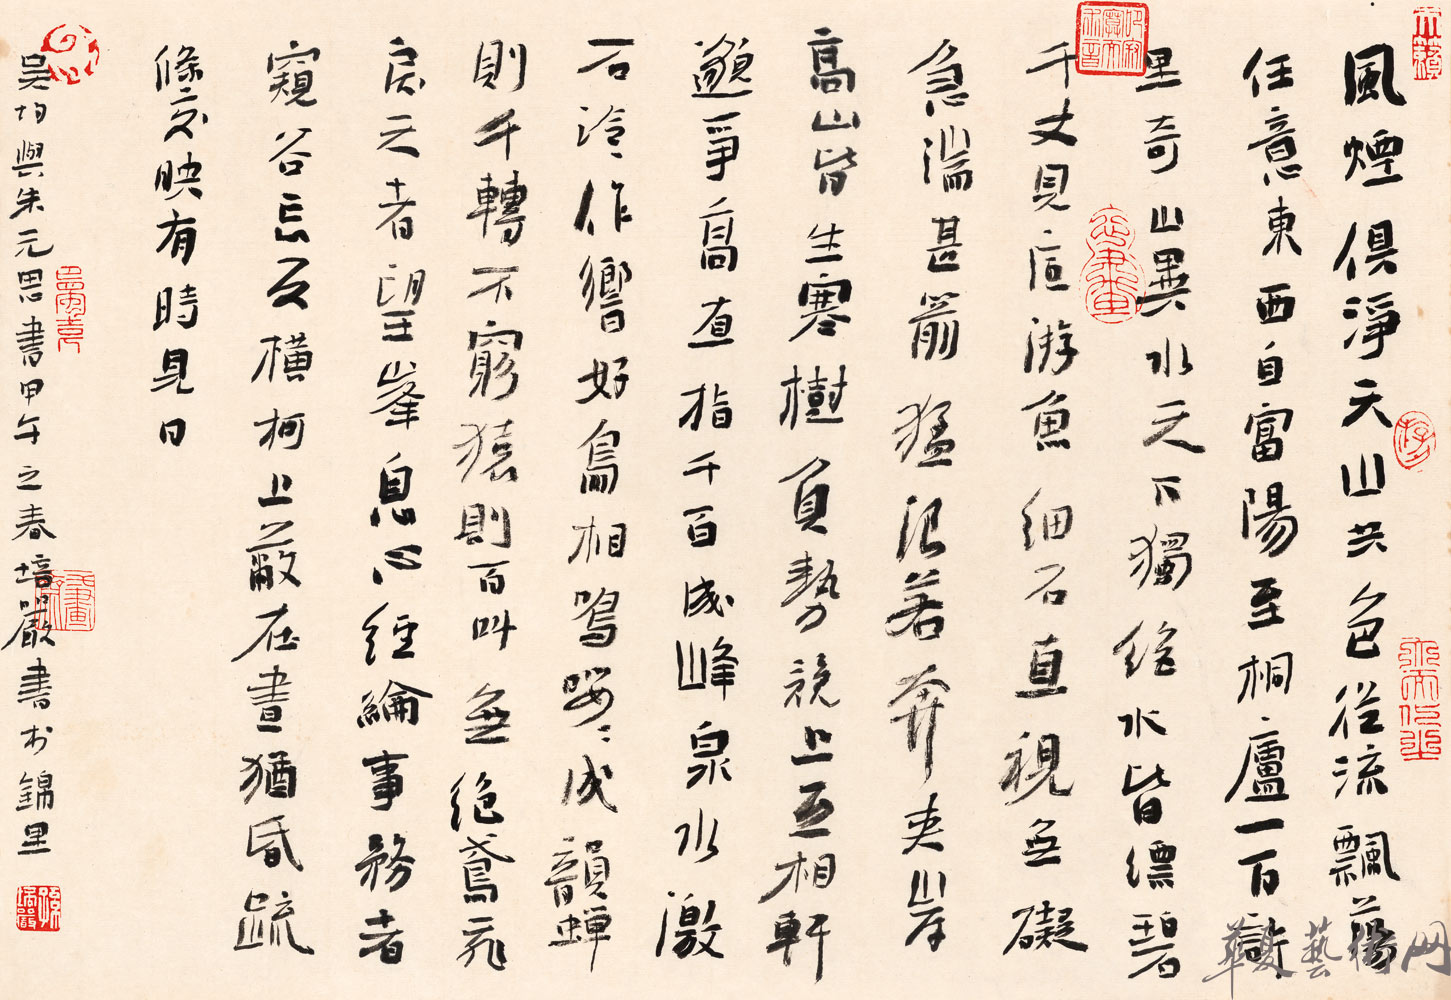 風煙俱淨天山共色從流飄蕩
任意東西自富陽至桐廬一百許
里奇山異水天下獨絕水皆縹碧
千丈見底游魚細石直視無礙
急湍甚箭猛浪若奔夹山岸
高山皆生寒樹負勢競上互相軒
邈爭高直指千百成峰泉水激
石泠〻作響好鳥相鳴嚶〻成韻蟬
則千轉不窮猿則百叫無绝鳶飛
戾天者望峯息心經綸事務者
窺谷忘反橫柯上蔽在晝猶昏疏
條交映有時見日
吴均與朱元思書甲午之春培嚴書於錦里
華夏藝術网